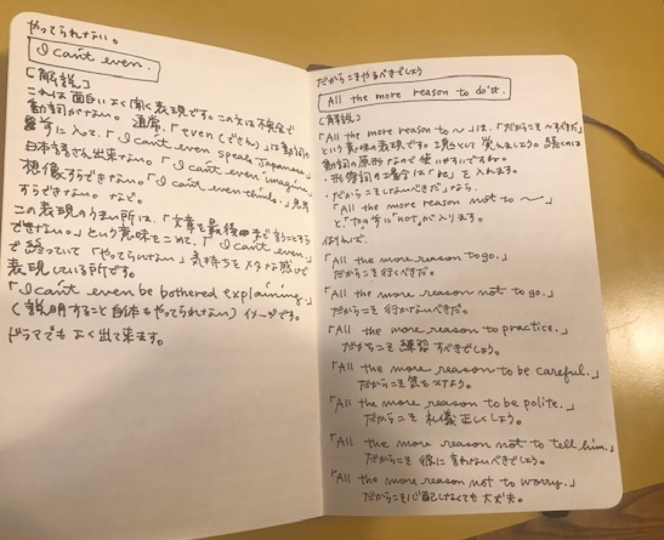 やってられない。
I can't even.
[解説]
これは面白いよく聞く表現です。この文は不完全で
動詞がない。通常、「even(でさえ)」は動詞の
前に入って、「I can't even speak Japanese.」
日本語さえ出来ない。「I can't even imagine.」
想像すらできない。「I can't even think.」思考
すらできない。など。
この表現のうまい所は、「文章を最後まで言うことすら
できない。」という意味をこめて、「I can't even.」
で終っていて「やってられない」気持ちをメタな感じで
表現している所です。
「I can't even be bothered explaining.」
(説明すること自体もやってられない)イメージです。
ドラマでもよく出て来ます。
だからこそやるべきでしょう
All the more reason to do it.
[解説]
「All the more reason to ~」は、「だからこそ~すべきだ」
という意味の表現です。1例として覚えましょう。続くのは
動詞の原形なので使いやすいですね。
・形容詞の場合は「be」を入れます。
・だからこそしないべきだ」なら、
「All the more reason not to ~」
と、「to」の前に「not」が入ります。
例えば、
「All the more reason to go.」
だからこそ行くべきだ。
「All the more reason not to go.」
だからこそ行かないべきだ。
「All the more reason to practice.」
だからこそ練習すべきでしょう。
「All the more reason to be careful.」
だからこそ気をつけよう。
「All the more reason to be polite.」
だからこそ礼儀正しくしよう。
「All the more reason not to tell him.」
だからこそ彼に言わないべきでしょう。
「All the more reason not to worry.」
だからこそ心配しなくても大丈夫。